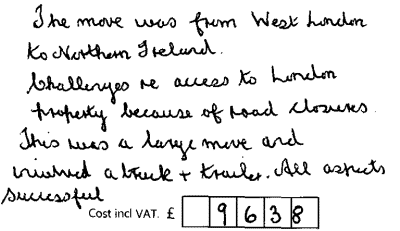 The move was from West London
to Northern Ireland.
Challenges re access to London
property because of road closures.
This was a large move and
involved a truck + trailer. All aspects
successful
Cost incl VAT. £ 9638